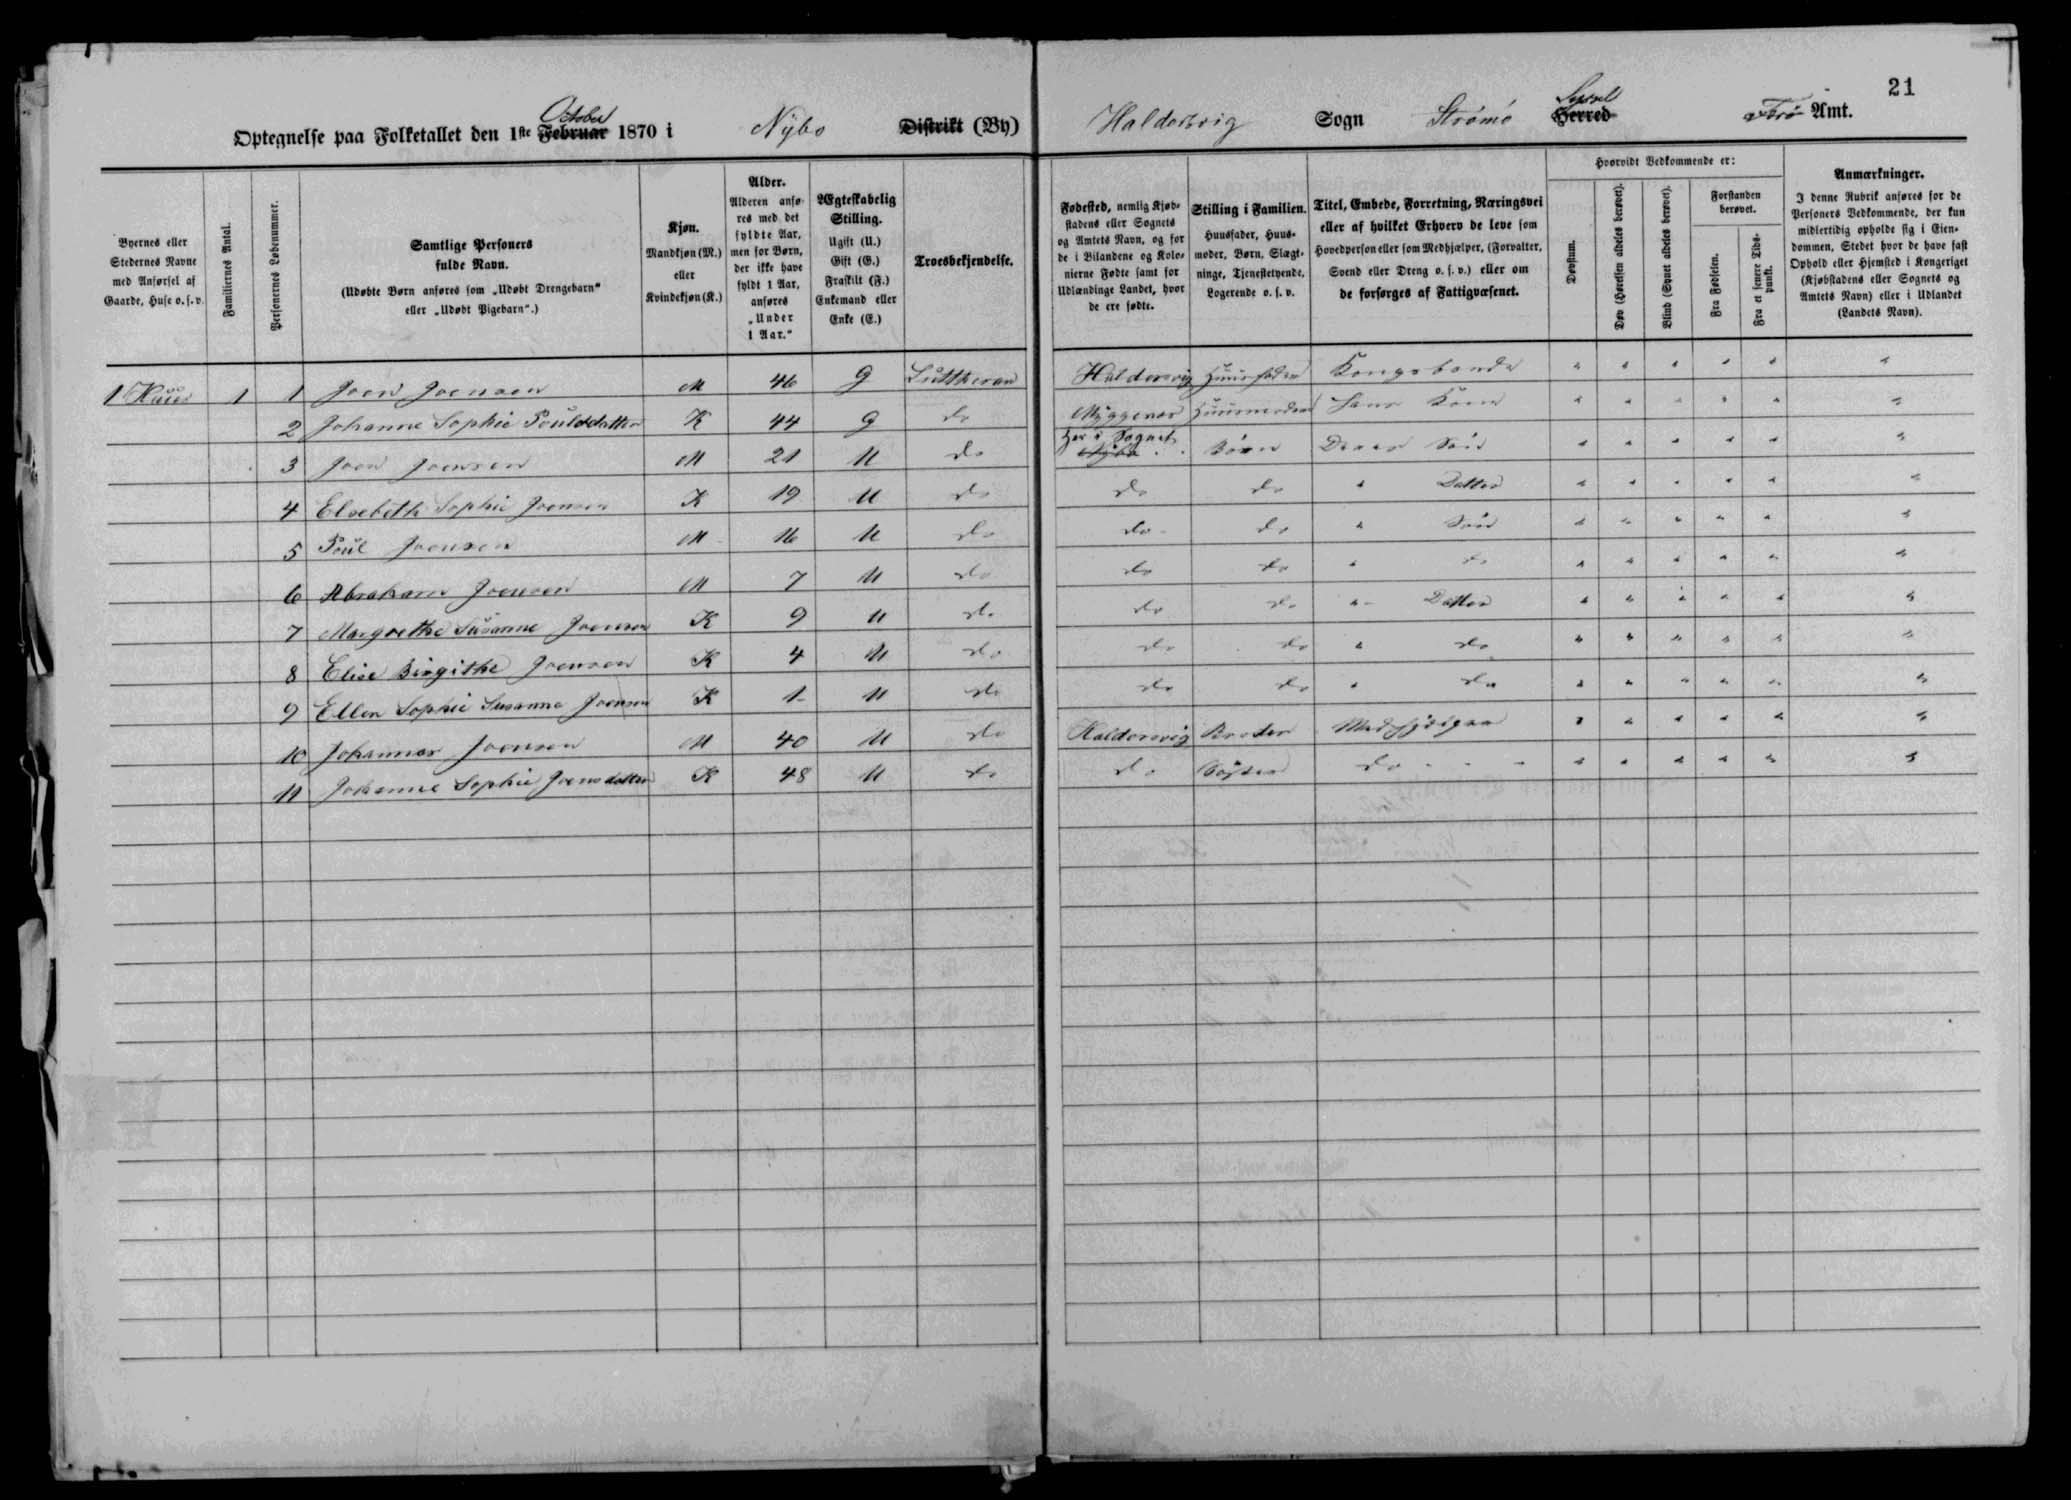 21
Optegnelse paa Folketallet den 1ste Februar October 1870 i Nÿbo Distrikt (By) Haldersvig Sogn Strømø Herred Syssel Færø Amt.
Byernes eller Stedernes Navne med Anførsel af Gaarde, Huse o. s. v.
Familiernes Antal.
Personernes Løbenummer.
Samtlige Personers fulde Navn.
(Udøbte Børn anføres som „Udøbt Drengebarn“ eller „Udøbt Pigebarn“.)
Kjøn.
Mandkjøn (M.) eller Kvindekjøn (K.)
Alder.
Alderen anføres med det fyldte Aar, men for Børn, der ikke have fyldt 1 Aar, anføres „Under 1 Aar.“
Ægteskabelig Stilling.
Ugift (U.) Gift (G.) Fraskilt (F.) Enkemand eller Enke (E.)
Troesbekjendelse.
Fødested, nemlig Kjøbstadens eller Sognets og Amtets Navn, og for de i Bilandene og Kolonierne Fødte samt for Udlændinge Landet, hvor de ere fødte.
Stilling i Familien.
Huusfader, Huusmoder, Børn, Slægtninge, Tjenestetyende, Logerende o. s. v.
Titel, Embede, Forretning, Næringsvei eller af hvilket Erhverv de leve som Hovedperson eller som Medhjælper, (Forvalter, Svend eller Dreng o. s. v.) eller om de forsørges af Fattigvæsenet.
Hvorvidt Vedkommende er:
Døvstum.
Døv (Hørelsen aldeles berøvet).
Blind (Synet aldeles berøvet).
Forstanden berøvet.
Fra Fødselen.
Fra et senere Tidspunkt.
Anmærkninger.
I denne Rubrik anføres for de Personers Vedkommende, der kun midlertidig opholde sig i Eiendommen, Stedet hvor de have fast Ophold eller Hjemsted i Kongeriget (Kjøbstadens eller Sognets og Amtets Navn) eller i Udlandet (Landets Navn).
1 Huus 1 1 Joen Joensen M 46 G Luttheran Haldersvig Huusfader Kongsbonde " " " " " "
2 Johanne Sophie Poulsdatter K 44 G do Myggenæs Huusmoder Hans Kone " " " " " "
3 Joen Joensen M 21 U do Her i Sognet Nÿbo Børn Deres Søn " " " " " "
4 Elsebeth Sophie Joensen K 19 U do do do " Datter " " " " " "
5 Poul Joensen M 16 U do do do " Søn " " " " " "
6 Abraham Joensen M 7 U do do do " do " " " " " "
7 Margrethe Susanne Joensen K 9 U do do do " Datter " " " " " "
8 Elise Birgithe Joensen K 4 U do do do " do " " " " " "
9 Ellen Sophie Susanne Joensen K 1 U do do do " do " " " " " "
10 Johannes Joensen M 40 U do Haldersvig Broder Medhjælper " " " " " "
11 Johanne Sophie Joensdatter K 48 U do do Søster do " " " " " "